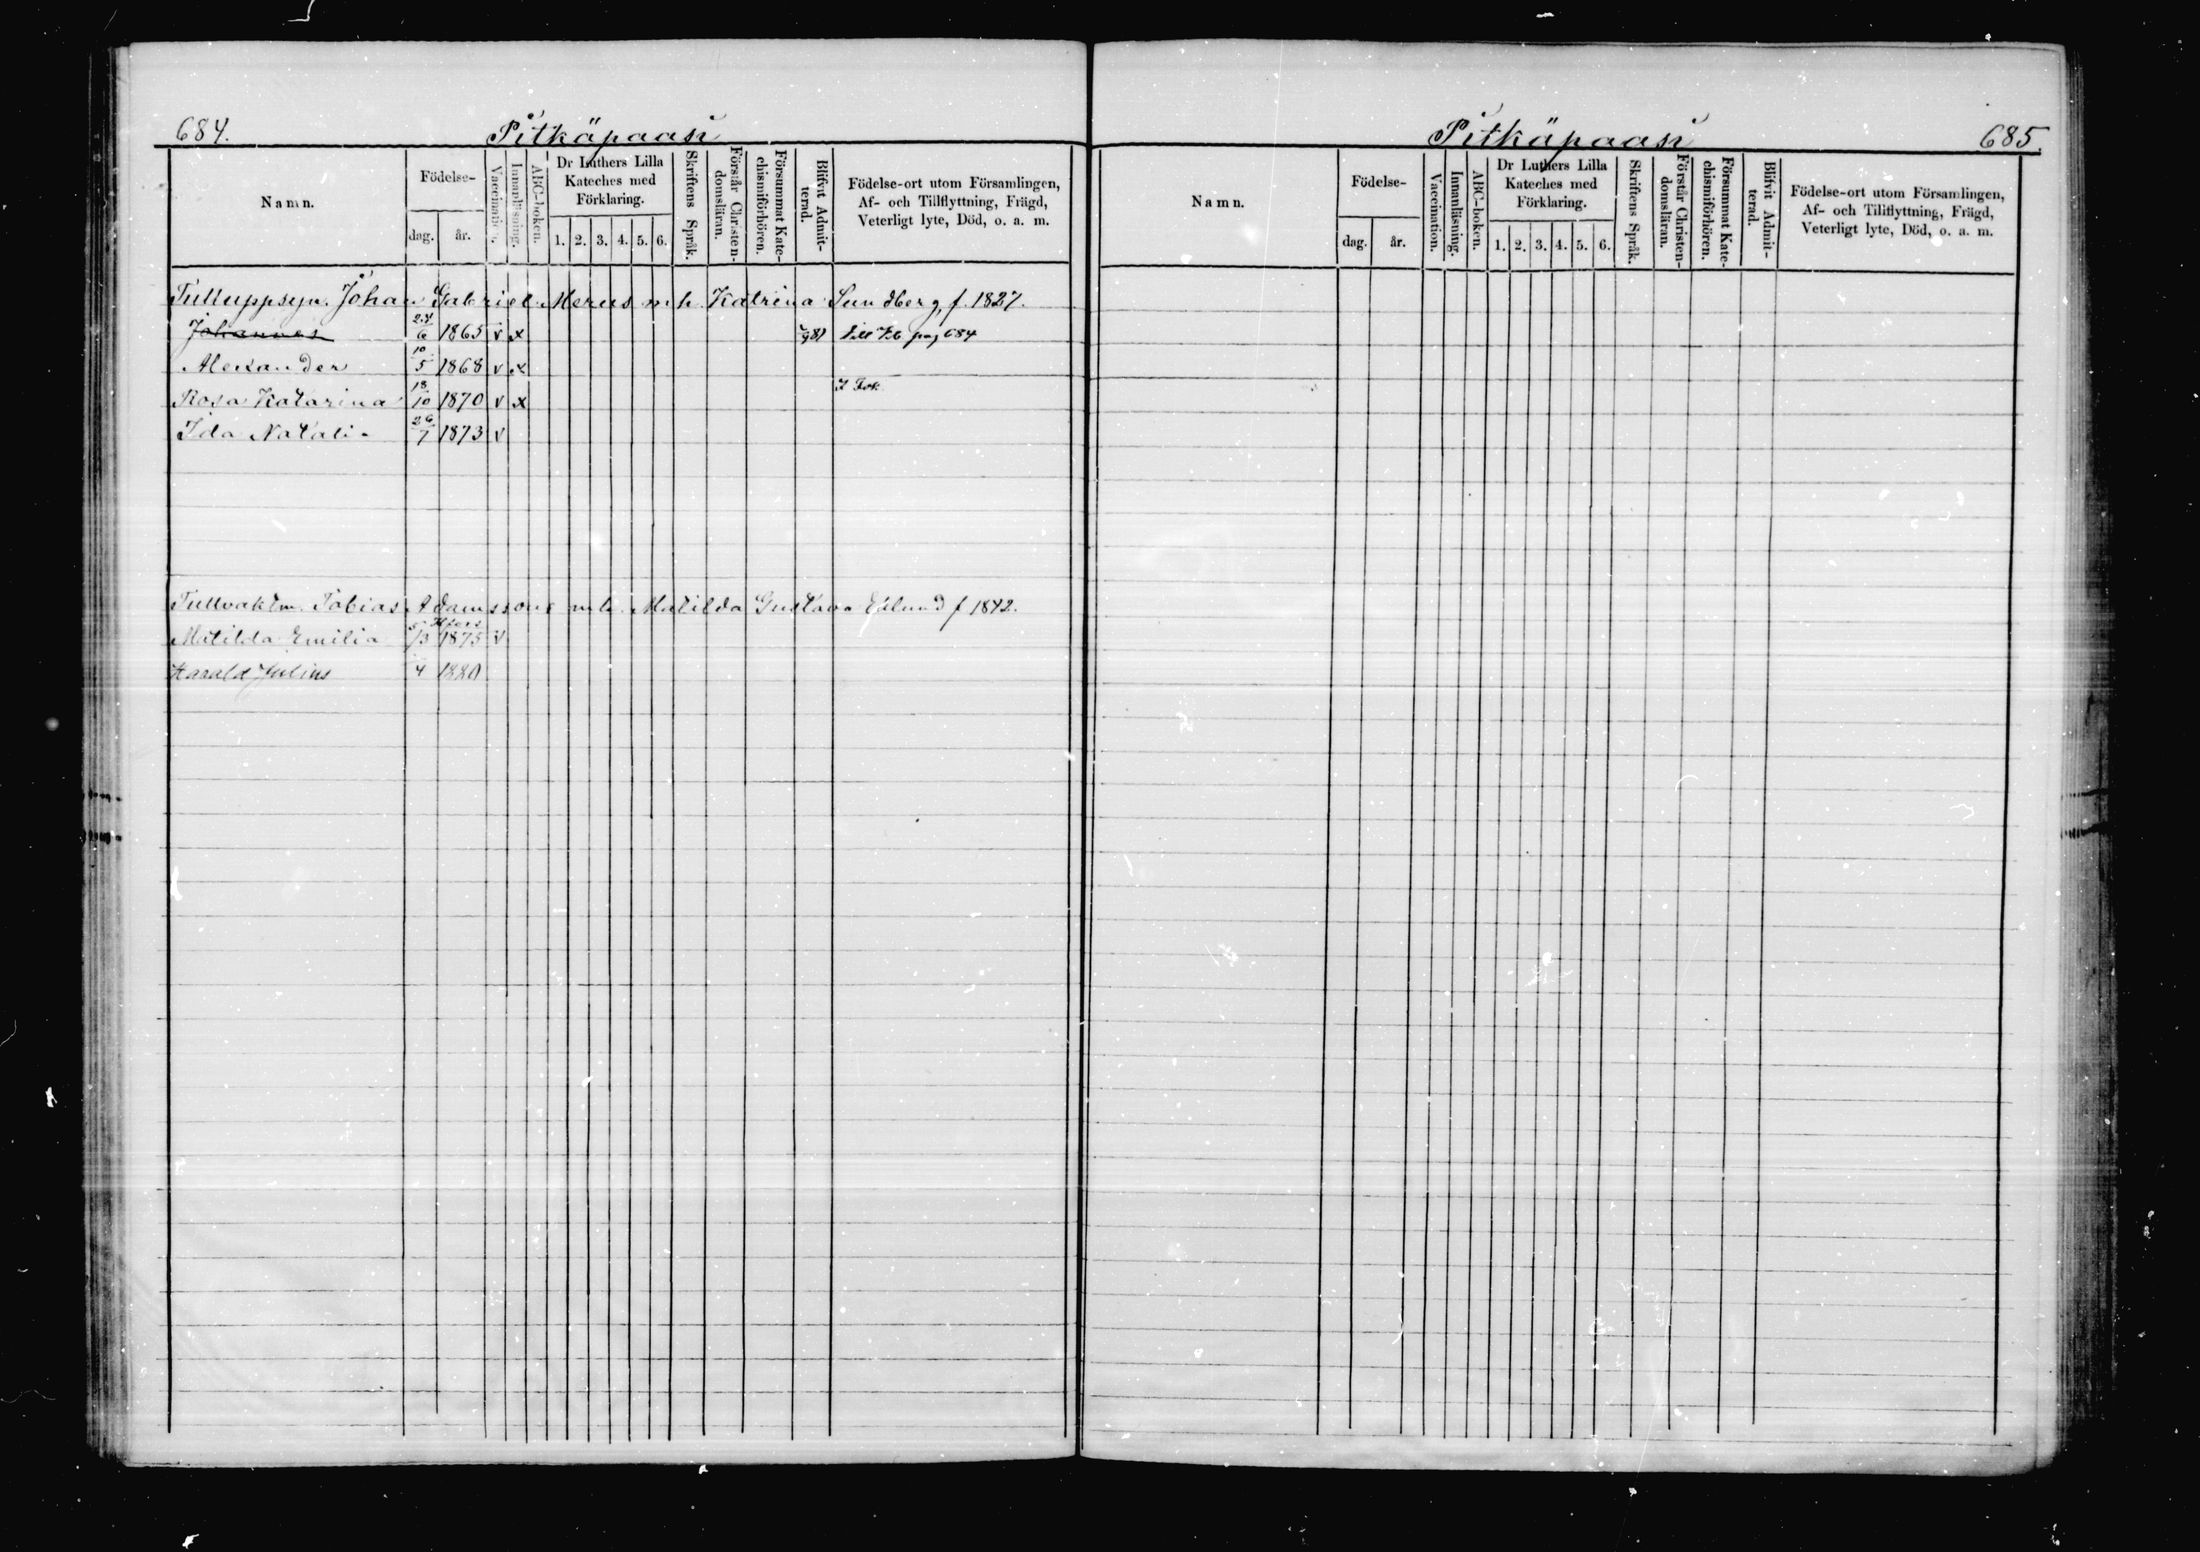 684. Pitkäpaasi
Namn. Födelse- dag. år. Vaccination. Innanläsning. ABC-boken. Dr Luthers Lilla Kateches med Förklaring. 1. 2. 3. 4. 5. 6. Skriftens Språk. Förstår Christendomsläran. Försummat Katechismiförhören. Blifvit Admitterad. Födelse-ort utom Församlingen, Af- och Tillflyttning, Frägd, Veterligt lyte, Död, o. a. m.
Tulluppsyn. Johan Gabriel Merus m h. Katrina Sundberg, f. 1827.
Johannes 24/6 1865 v x till Kb pag 684
Alexander 10/5 1868 v x
Rosa Katarina 18/10 1870 v x
Ida Natali 26/7 1873 v
Tullvaktm. Tobias Adamssons m h. Matilda Gustava Edlund f 1842.
Matilda Emilia 5/3 1875 v
Harald Julius 4 1880
Pitkäpaasi 685.
Namn. Födelse- dag. år. Vaccination. Innanläsning. ABC-boken. Dr Luthers Lilla Kateches med Förklaring. 1. 2. 3. 4. 5. 6. Skriftens Språk. Förstår Christendomsläran. Försummat Katechismiförhören. Blifvit Admitterad. Födelse-ort utom Församlingen, Af- och Tillflyttning, Frägd, Veterligt lyte, Död, o. a. m.